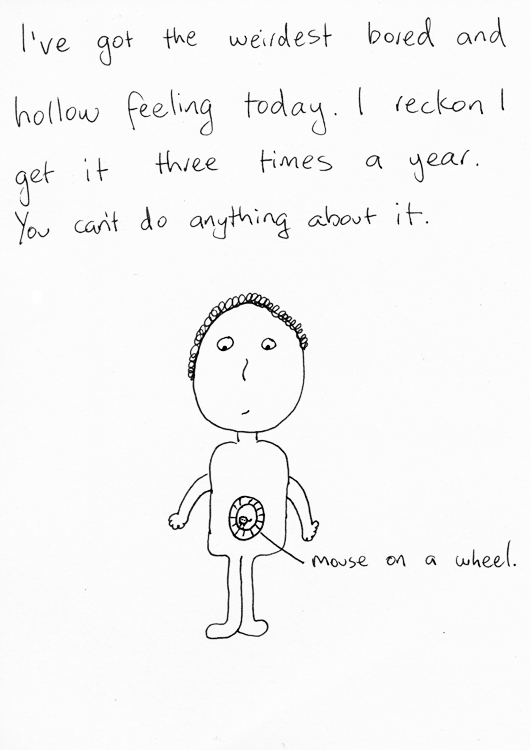 I've got the weirdest bored and
hollow feeling today. I reckon I
get it three times a year.
You can't do anything about it.
mouse on a wheel.